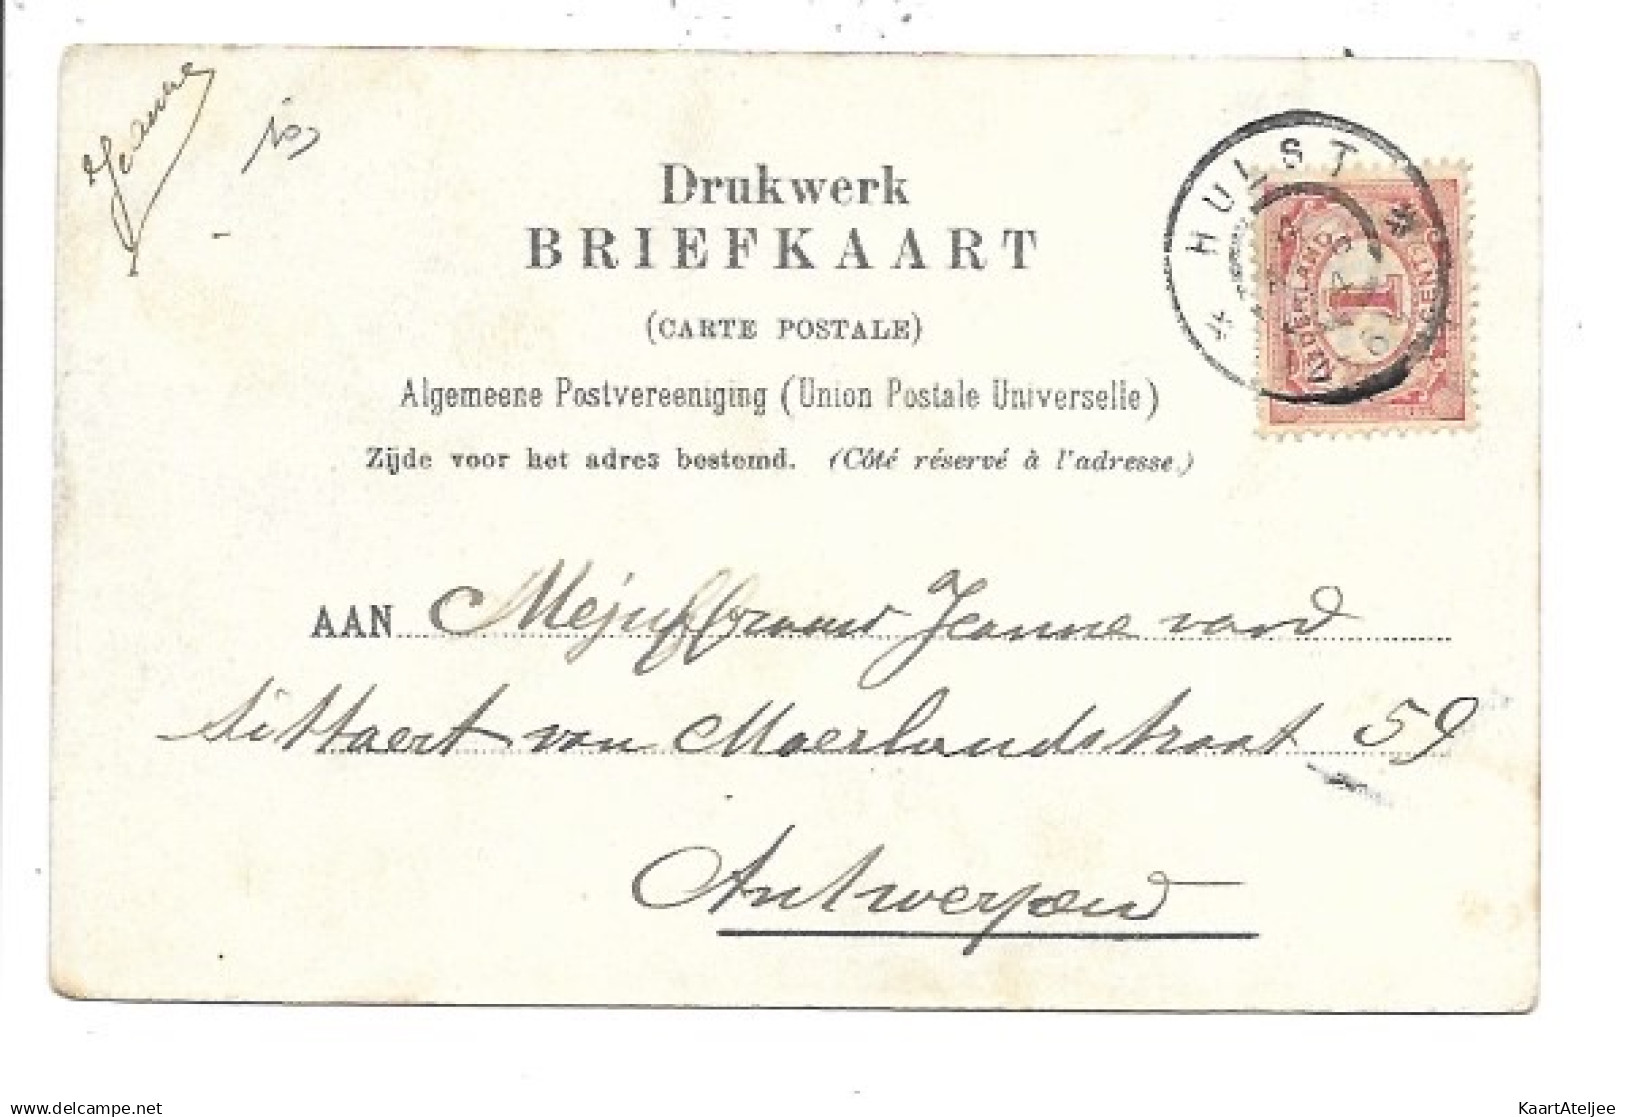 Jeanne
Drukwerk
BRIEFKAART
(CARTE POSTALE)
Algemeene Postvereeniging (Union Postale Universelle)
Zijde voor het adres bestemd. (Côté réservé à l'adresse.)
HULST
NEDERLAND
1
CENT
AAN Mejuffrouw Jeanne
van Maerlandstraat 59
Antwerpen
www.delcampe.net
KaartAteljee